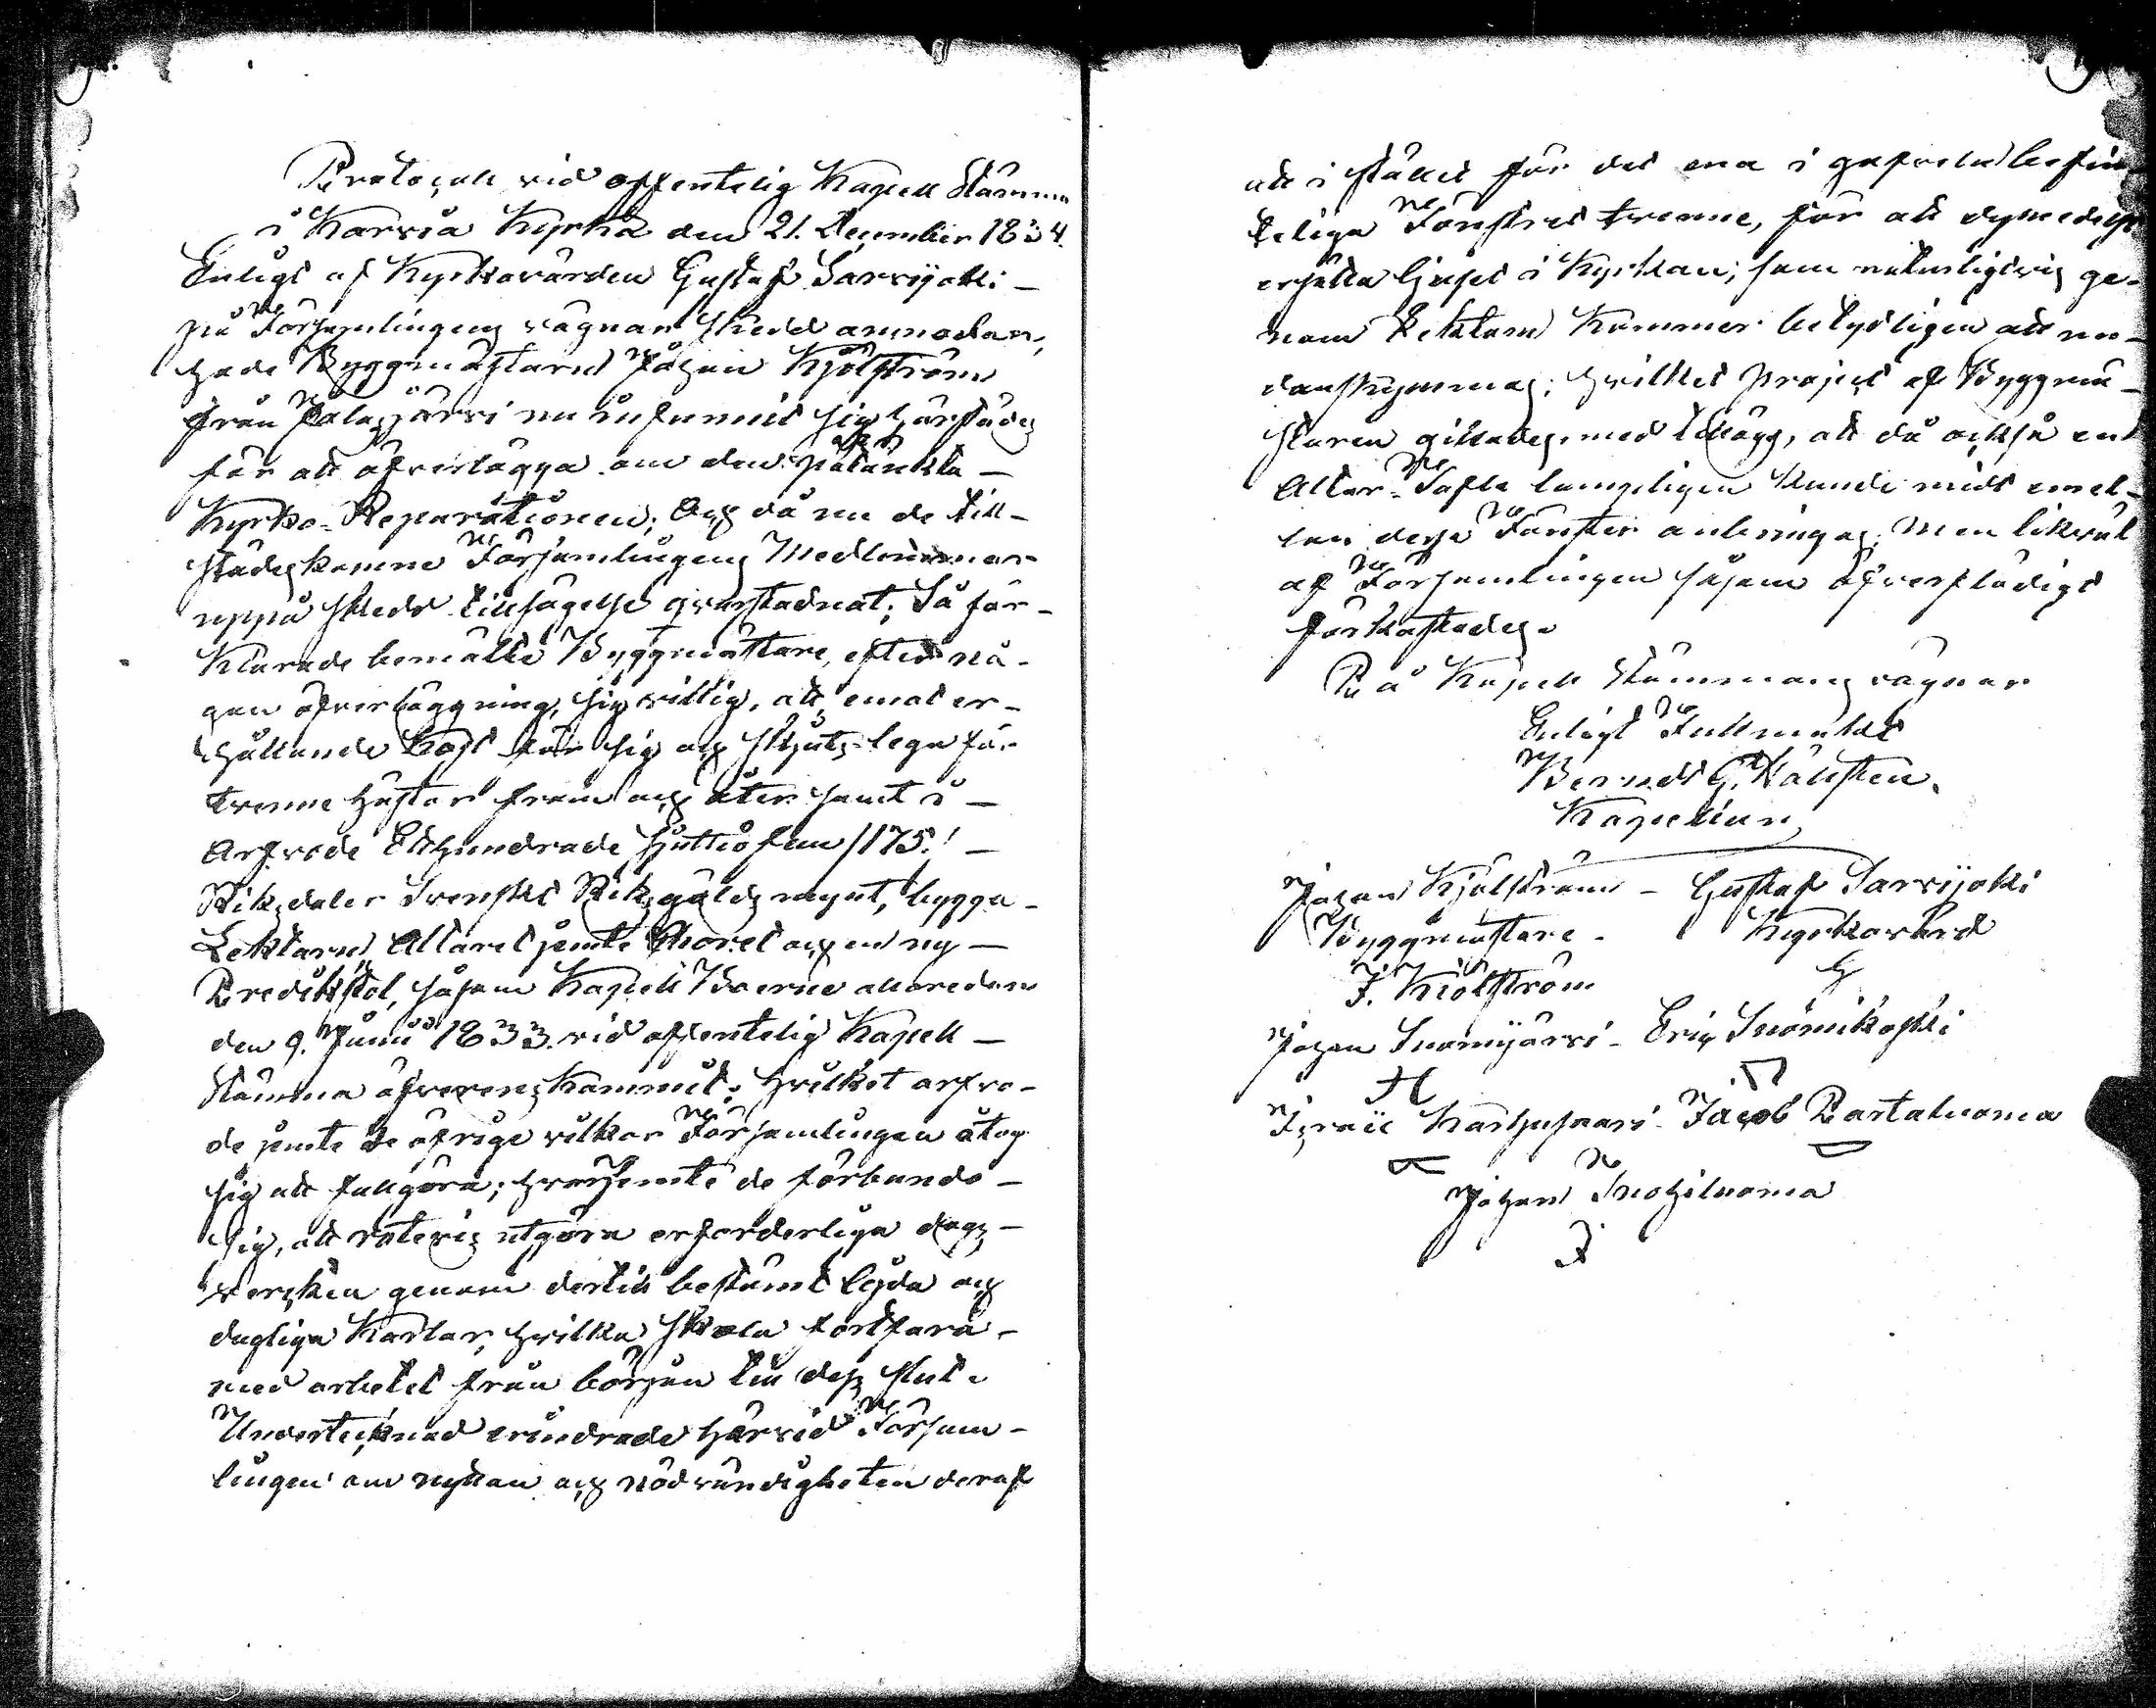 Protocoll vid offentelig Kapell Stämma
i Karvia Kyrka den 21. December 1834.
Enligt af Kyrkovärden Gustaf Sarvijoki -
på Församlingens vägnar skedd anmodan,
hade Byggmästaren Johan Kjölström
från Jalasjärvi nu infunnit sig härstädes
för att öfverlägga om den påtänkta -
Kyrko-Reparationen; Och då nu de till-
städeskomne Församlingens Medlemmar
uppå skedd tillsägelse qvarstadnat; Så för-
klarade bemälte Byggmästare, efter nå-
gon öfverläggning, sig villig, att emot er-
hållande kost för sig och skjutslega för
trenne hästar fram och åter samt i -
Arfvode Etthundrade sjuttiofem /175./ -
Riksdaler Svenskt Riksgälds mynt, bygga -
Lektarn, Altaret jemte Choret och en ny -
Predikstol, såsom Kapell Boerne allaredan
den 9. Junii 1833. vid offentelig Kapell -
Stämma öfverens kommit; Hvilket arfvo-
de jemte de öfrige vilkor Församlingen åtog
sig att fullgöra; hvarjemte de förbundo -
sig, att rotevis utgöra erforderliga dags-
vercken genom dertill bestämt lejda och
dugliga Karlar, hvilka skola fortfara -
med arbetet från början till dess slut.
Undertecknad erindrade härvid Försam-
lingen om nyttan och nödvändigheten deraf
att i stället för det ena i gafveln befin-
teliga Fönstret trenne, för att dymedelst
ersätta ljuset i Kyrkan; som naturligtvis ge-
nom Lektarn kommer betydligen att un-
danskymmas; hvilket project af Byggmä-
staren gillades, med tillägg, att då också en
Altar-Tafla lämpeligen kunde midt emel-
lan desse Fönster anbringas; men likväl
af Församlingen såsom öfverflödigt
förkastades.
På Kapell Stämmans vägnar
Enligt Fullmakt
Berndt G. Hällsten.
Kapellan
Johan Kjölström - Gustaf Sarvijoki
Byggmästare - Kyrkovärd
J. Kiölström
Johan Suomijärvi - Eric Suomikoski
Israel Karhusaari - Jacob Rastaluoma
Johan Suohiluoma